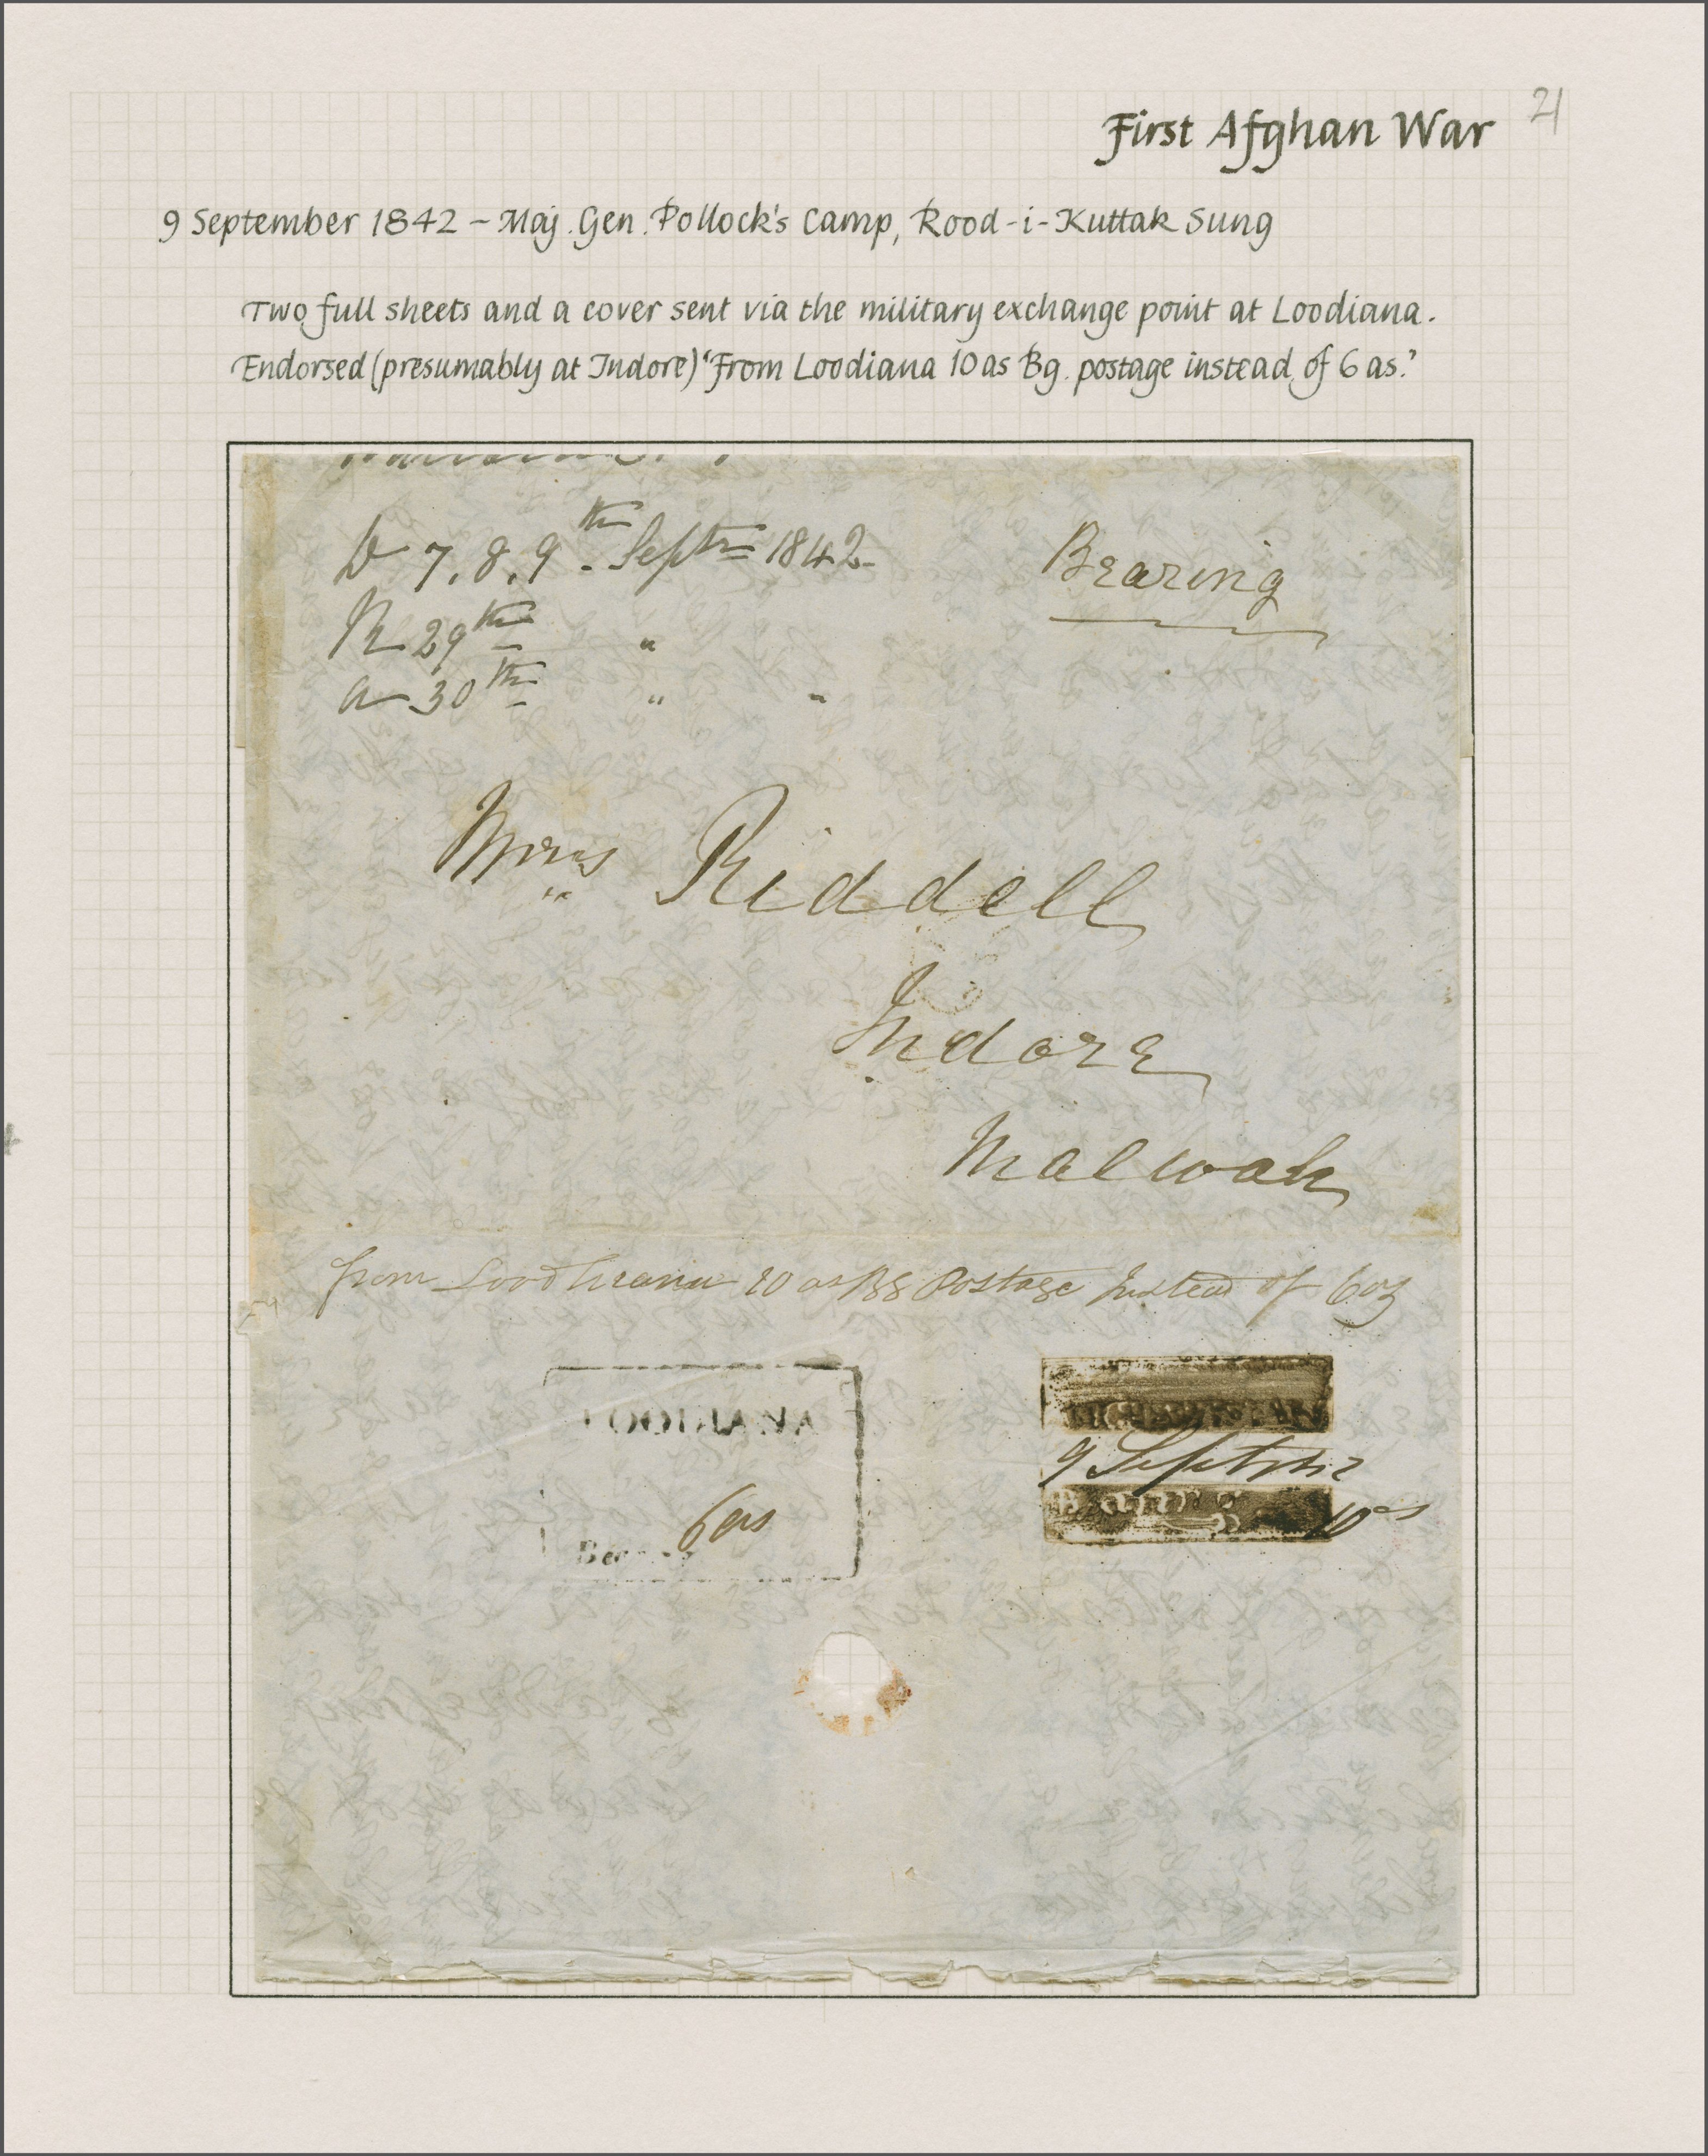 First Afghan War
21
9 September 1842 – Maj. Gen. Pollock's Camp, Rood-i-Kuttak Sung
Two full sheets and a cover sent via the military exchange point at Loodiana.
Endorsed (presumably at Indore) 'From Loodiana 10 as Bg. postage instead of 6 as.'
D 7. 8. 9th Septr 1842
R 29th "
a 30th " "
Bearing
Mrs Riddell
Indore
Malwah
from Loodheana 10 as Bg Postage Instead of 6 as
LOODIANA
6 as
9 Sept
10 as